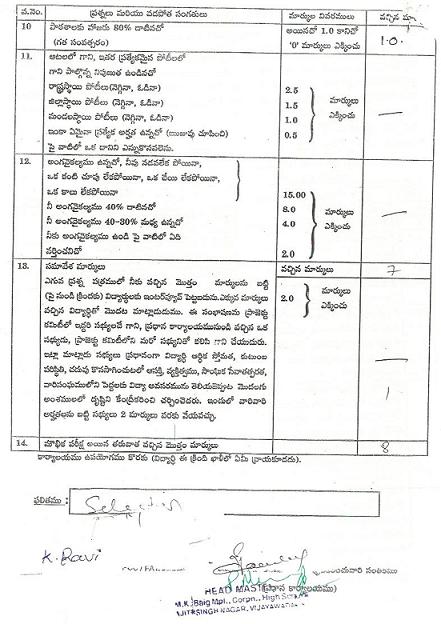 వ.నెం. ప్రశ్నలు మరియు వడపోత సంగతులు మార్కుల వివరములు వచ్చిన మా.
10 పాఠశాలకు హాజరు 80% దాటినదో అయినదో 1.0 కానిచో 1.0
(గత సంవత్సరం) '0' మార్కులు ఎక్కించు
11. ఆటలలో గాని, ఇతర ప్రత్యేకమైన పోటీలలో
గాని పాల్గొన్న నిపుణత ఉండినచో
రాష్ట్రస్థాయి పోటీలు(నెగ్గినా, ఓడినా) 2.5
జిల్లాస్థాయి పోటీలు(నెగ్గినా, ఓడినా) 1.5 మార్కులు
మండలస్థాయి పోటీలు(నెగ్గినా, ఓడినా) 1.0 ఎక్కించు
ఇంకా ఏమైనా ప్రత్యేక అర్హత ఉన్నచో (ఋజువు చూపించి) 0.5
పై వాటిలో ఒక దానిని ఎన్నుకొనవలెను.
12. అంగవైకల్యము ఉన్నచో, నీవు నడవలేక పోయినా,
ఒక కంటి చూపు లేకపోయినా, ఒక చేయి లేకపోయినా,
ఒక కాలు లేకపోయినా 15.00
నీ అంగవైకల్యము 40% దాటినచో 8.0 మార్కులు
నీ అంగవైకల్యము 40-30% మధ్య ఉన్నచో 4.0 ఎక్కించు
నీకు అంగవైకల్యము ఉండి పై వాటిలో ఏది
వర్తించనిచో 2.0
13. సమావేశ మార్కులు వచ్చిన మార్కులు 7
ఎగువ ప్రశ్న పత్రములో నీకు వచ్చిన మొత్తం మార్కులను బట్టి
(పై నుండి క్రిందకు) విద్యార్థులకు ఇంటర్వ్యూవ్ పెట్టబడును.ఎక్కువ మార్కులు 2.0 మార్కులు
వచ్చిన విద్యార్థితో మొదట మాట్లాడుదుము. ఈ సంభాషణను ప్రాజెక్టు ఎక్కించు
కమిటీలో ఇద్దరి సభ్యులచే గాని, ప్రధాన కార్యాలయమునుండి వచ్చిన ఒక
సభ్యుడు, ప్రాజెక్టు కమిటీలోని మరో సభ్యునితో కలిసి గాని చేయుదురు.
ఇట్లా మాట్లాడు సభ్యులు ప్రధానంగా విద్యార్థి ఆర్థిక స్తోమత, కుటుంబ
పరిస్థితి, చదువు కొనసాగించుటలో ఆసక్తి, వ్యక్తిత్వము, సాంఘిక సేవాతత్పరత,
వారిసంఘములోని పెద్దలకు విద్య అవసరమును తెలియచెప్పుట మొదలగు
అంశములలో దృష్టిని కేంద్రీకరించి చర్చించెదరు. ఇందులో వారివారి 1
అర్హతలను బట్టి సభ్యులు 2 మార్కులు వరకు వేయవచ్చు.
14. మౌఖిక పరీక్ష అయిన తరువాత వచ్చిన మొత్తం మార్కులు 8
కార్యాలయము ఉపయోగము కొరకు (విద్యార్థి ఈ క్రింది ఖాళీలో ఏమీ వ్రాయకూడదు).
ఫలితము : Selection
K. Ravi
HEAD MAST (ప్రధాన కార్యాలయము)
M.K. Baig Mpl., Corpn., High School
AJIT SINGH NAGAR, VIJAYAWADA